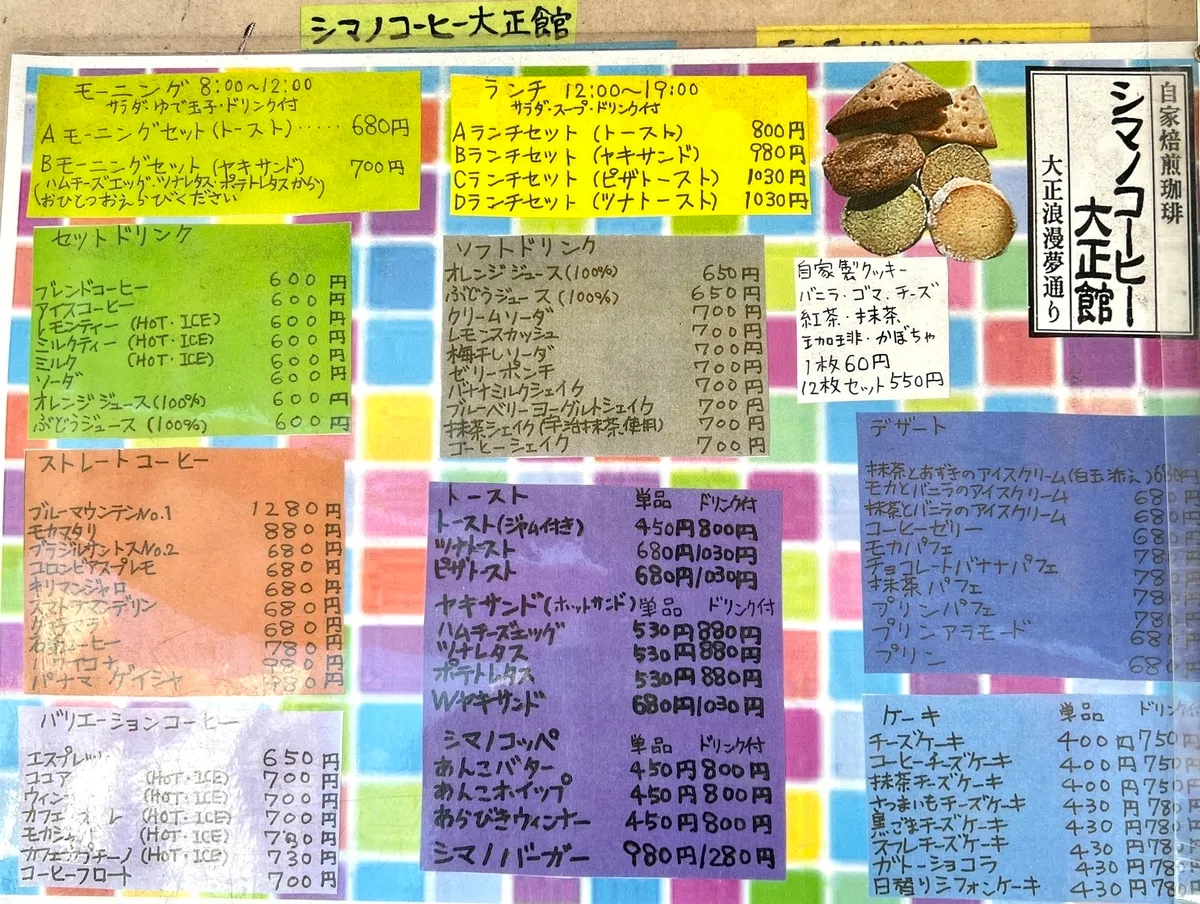 シマノコーヒー大正館
モーニング 8:00〜12:00
サラダ・ゆで玉子・ドリンク付
Aモーニングセット(トースト)····· 680円
Bモーニングセット(ヤキサンド) 700円
(ハムチーズエッグ・ツナレタス・ポテトレタスから)
おひとつおえらびください
ランチ 12:00〜19:00
サラダ・スープ・ドリンク付
Aランチセット (トースト) 800円
Bランチセット (ヤキサンド) 980円
Cランチセット (ピザトースト) 1030円
Dランチセット (ツナトースト) 1030円
自家焙煎珈琲
シマノコーヒー
大正館
大正浪漫夢通り
セットドリンク
ブレンドコーヒー 600円
アイスコーヒー 600円
レモンティー (HOT・ICE) 600円
ミルクティー (HOT・ICE) 600円
ミルク (HOT・ICE) 600円
ソーダ 600円
オレンジジュース(100%) 600円
ぶどうジュース (100%) 600円
ソフトドリンク
オレンジジュース(100%) 650円
ぶどうジュース (100%) 650円
クリームソーダ 700円
レモンスカッシュ 700円
梅干しソーダ 700円
ゼリーポンチ 700円
バナナミルクシェイク 700円
ブルーベリーヨーグルトシェイク 700円
抹茶シェイク(宇治抹茶使用) 700円
コーヒーシェイク 700円
自家製クッキー
バニラ・ゴマ、チーズ
紅茶・抹茶
珈琲・かぼちゃ
1枚60円
12枚セット550円
ストレートコーヒー
ブルーマウンテンNo.1 1280円
モカマタリ 880円
ブラジルサントスNo.2 680円
コロンビアスプレモ 680円
キリマンジャロ 680円
スマトラマンデリン 680円
680円
コーヒー 780円
ハワイコナ 円
パナマ ゲイシャ 円
トースト 単品 ドリンク付
トースト(ジャム付き) 450円800円
ツナトースト 680円/1030円
ピザトースト 680円/1030円
ヤキサンド(ホットサンド) 単品 ドリンク付
ハムチーズエッグ 530円880円
ツナレタス 530円880円
ポテトレタス 530円880円
Wヤキサンド 680円/1030円
シマノコッペ 単品 ドリンク付
あんこバター 450円800円
あんこホイップ 450円800円
あらびきウィンナー 450円800円
シマノバーガー 980円/1280円
デザート
抹茶とあずきのアイスクリーム(白玉添え)680円
モカとバニラのアイスクリーム 680
抹茶とバニラのアイスクリーム 680
コーヒーゼリー 680
モカパフェ 780
チョコレートバナナパフェ 780
抹茶パフェ 780
プリンパフェ 780
プリンアラモード 680
プリン 680
バリエーションコーヒー
エスプレッソ 650円
ココア (HOT・ICE) 700円
(HOT・ICE) 700円
カフェ (HOT・ICE) 700円
(HOT・ICE) 円
カフェカプチーノ (HOT・ICE) 730円
コーヒーフロート 700円
ケーキ 単品 ドリンク
チーズケーキ 400円750
コーヒーチーズケーキ 400円750
抹茶チーズケーキ 400円750
さつまいもチーズケーキ 430円780
黒ごまチーズケーキ 430円780
スフレチーズケーキ 430円780
ガトーショコラ 430円780
日替りシフォンケーキ 430円780